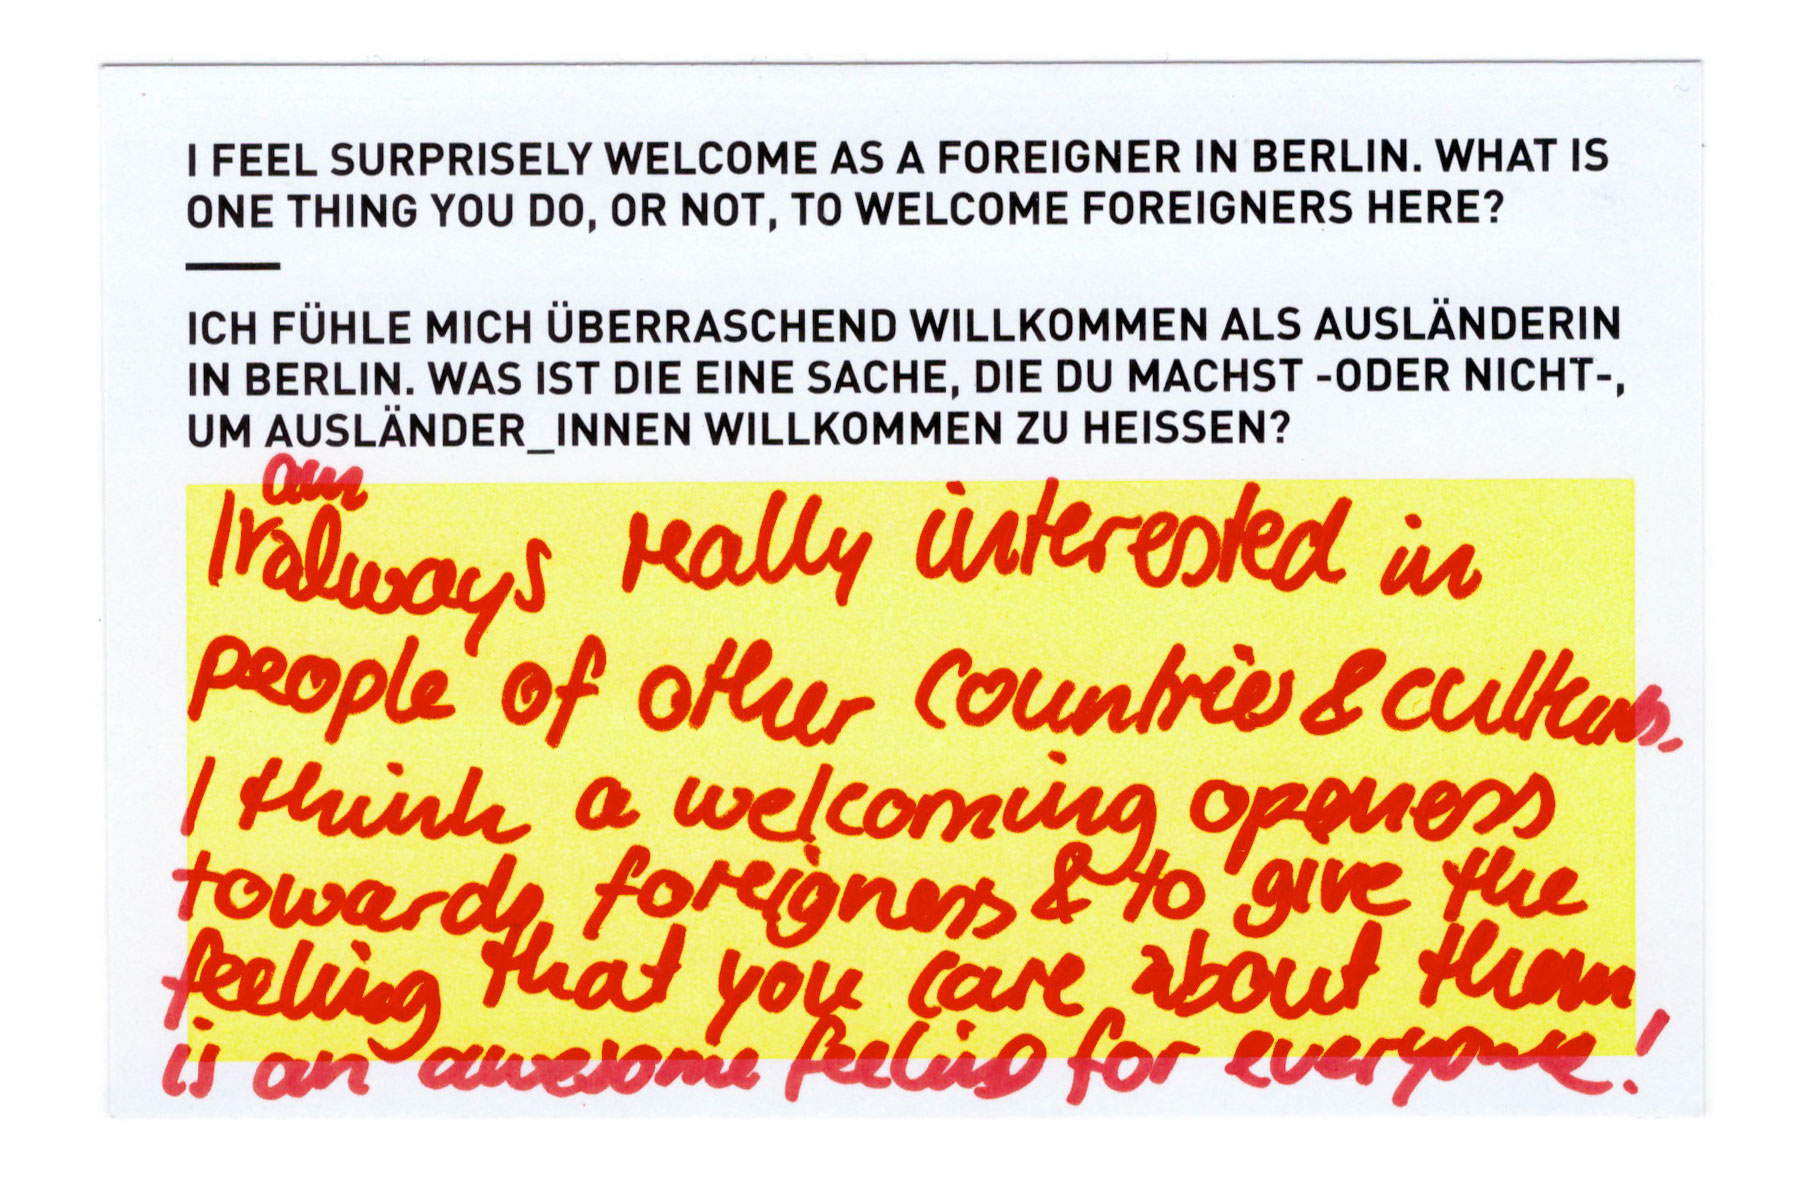 I FEEL SURPRISELY WELCOME AS A FOREIGNER IN BERLIN. WHAT IS
ONE THING YOU DO, OR NOT, TO WELCOME FOREIGNERS HERE?
ICH FÜHLE MICH ÜBERRASCHEND WILLKOMMEN ALS AUSLÄNDERIN
IN BERLIN. WAS IST DIE EINE SACHE, DIE DU MACHST -ODER NICHT-,
UM AUSLÄNDER_INNEN WILLKOMMEN ZU HEISSEN?
am
I always really interested in
people of other countries & cultures.
I think a welcoming openness
towards foreigners & to give the
feeling that you care about them
is an awesome feeling for everyone!